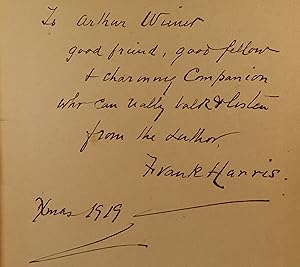 To Arthur Winer
good friend, good fellow
& charming Companion
who can really talk & listen
from the Author,
Frank Harris.
Xmas 1919